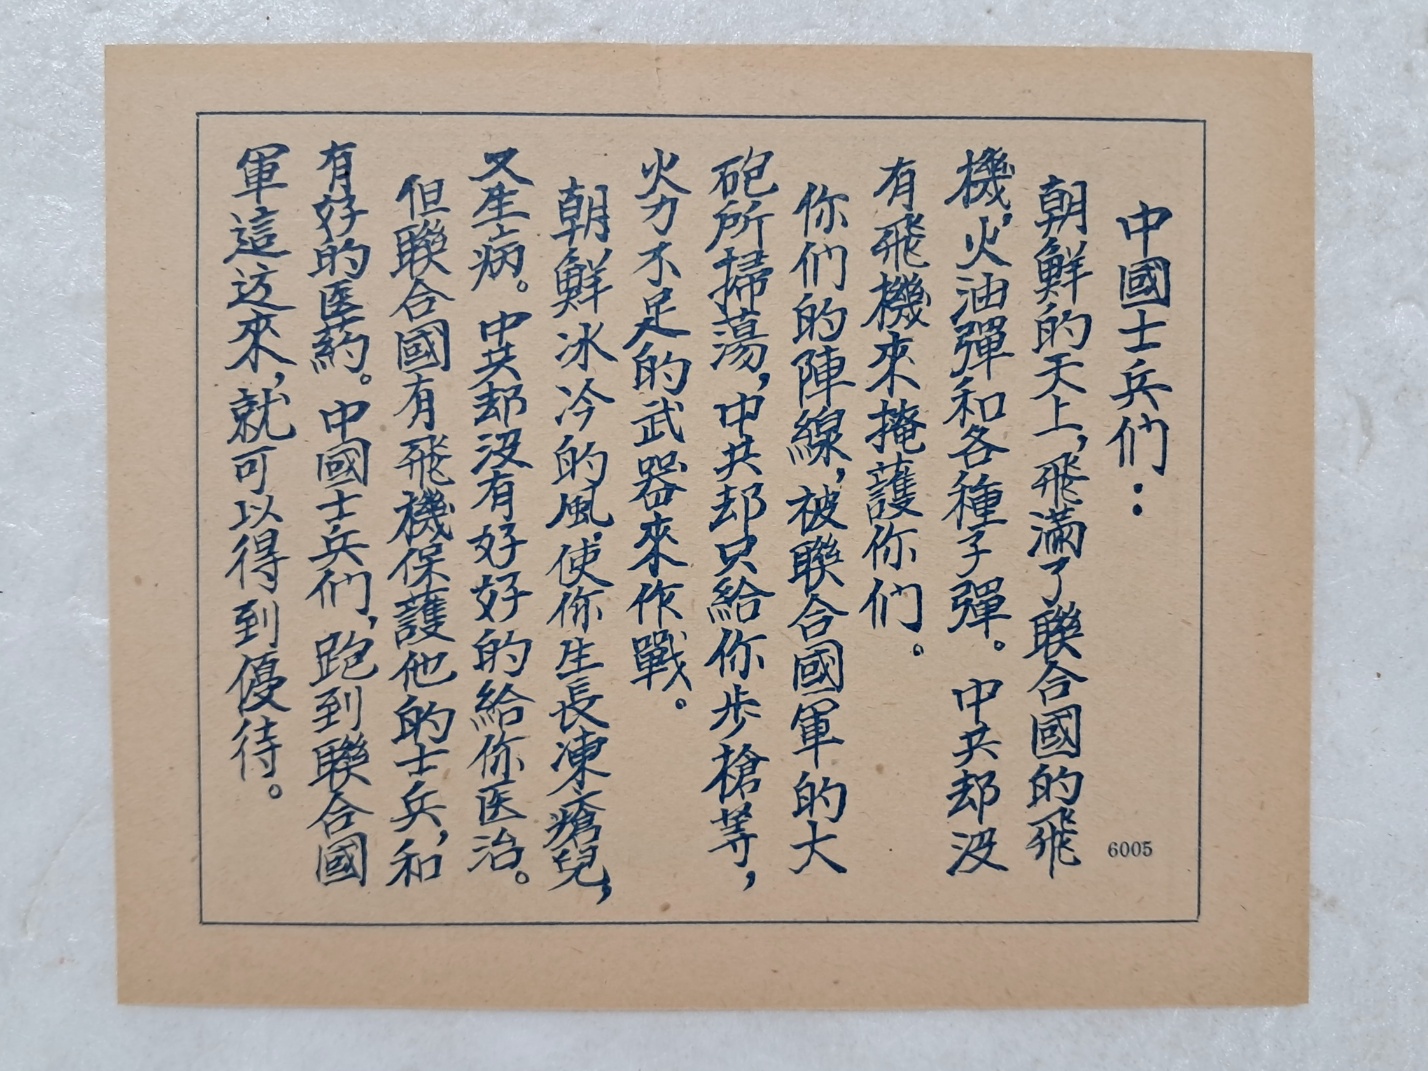 中國士兵们：
朝鮮的天上，飛滿了聯合國的飛
機，火油彈和各種子彈。中共却没
有飛機來掩護你们。
你们的陣線，被聯合國軍的大
砲所掃蕩，中共却只給你步槍等，
火力不足的武器來作戰。
朝鮮冰冷的風，使你生長凍瘡兒，
又生病。中共却沒有好好的給你医治。
但聯合國有飛機保護他的士兵，和
有好的医药。中國士兵们，跑到聯合國
軍這边來，就可以得到優待。
6005